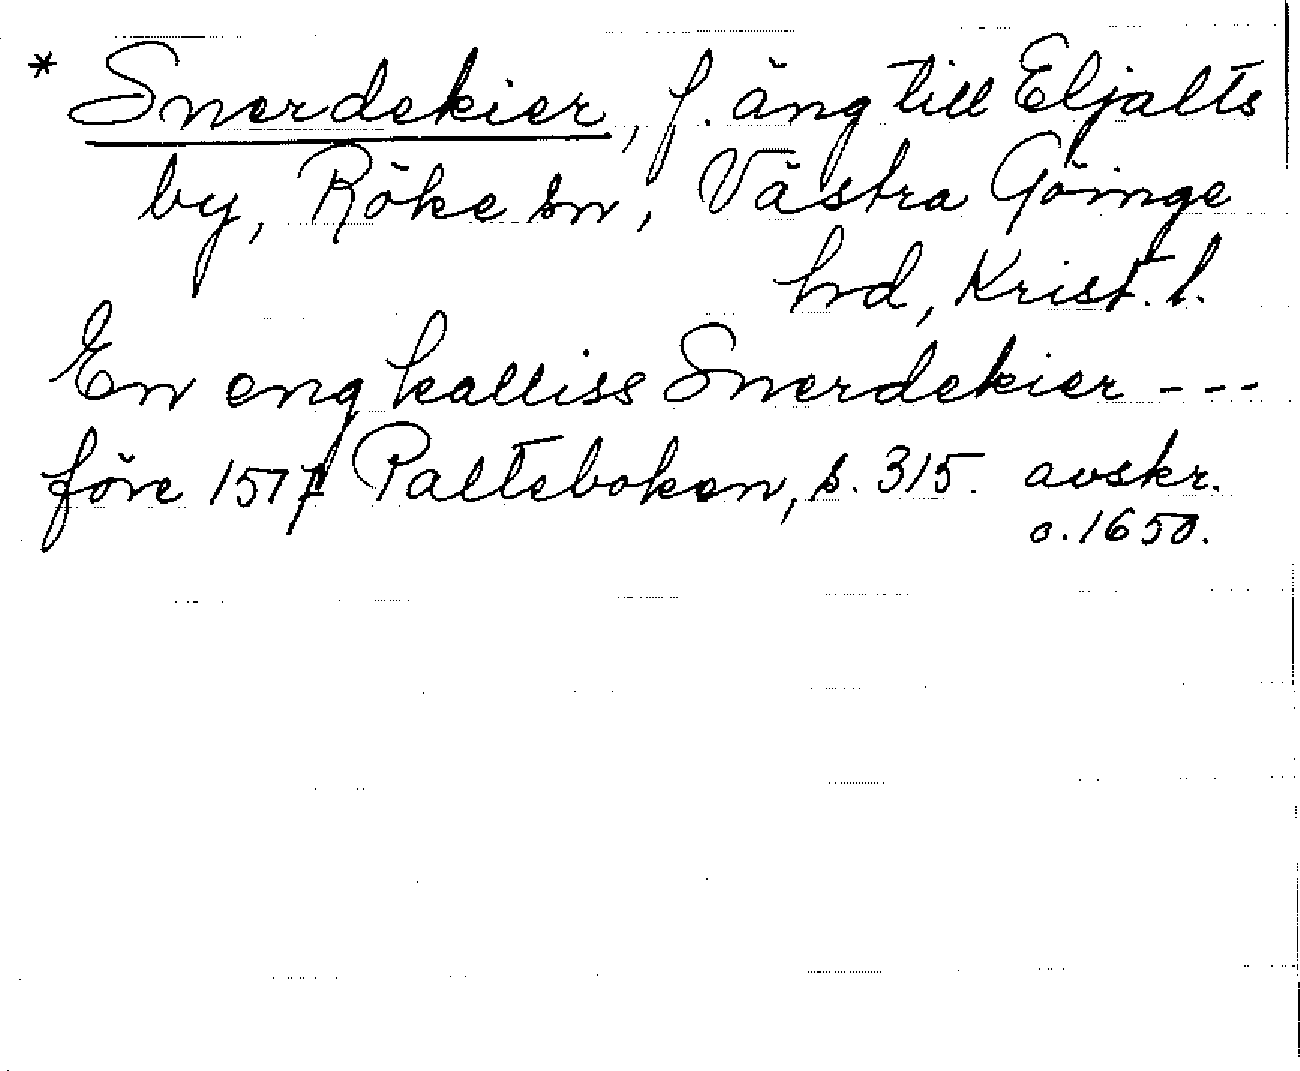 * Snerdekier, f. äng till Eljalts
by, Röke sn, Västra Göinge
hrd, Krist. l.
En eng kalliss Snerdekier ---
före 1577 Palteboken, s. 315. avskr.
o. 1650.